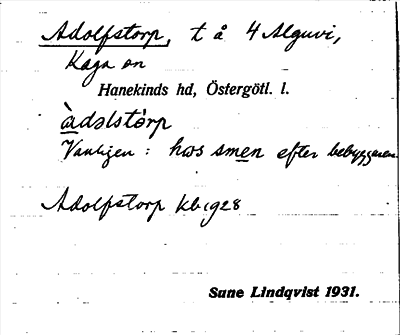 Adolfstorp, t å 4 Alguvi,
Kaga sn
Hanekinds hd, Östergötl. l.
àdɔlstórp
Vanligen: hɷs smen efter bebyggaren
Adolfstorp Kb 1928
Sune Lindqvist 1931.